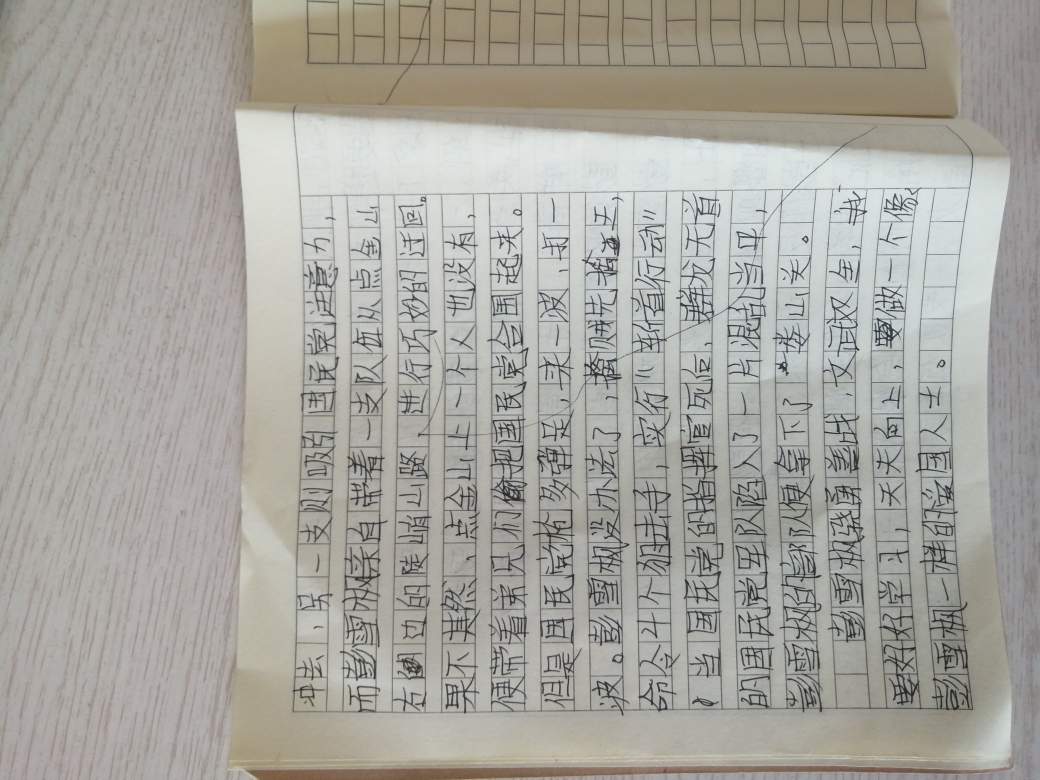 冲去，另一支则吸引国民党注意力，
而彭雪枫亲自带着一支队伍从点金山
右边的陡峭山路，进行巧妙的迂回。
果不其然，点金山上一个人也没有，
便带着弟兄们把国民党合围起来。
但是国民党枪多弹足，来一波，打一
波。彭雪枫没办法了，擒贼先擒王，
命令4个狙击手，实行“斩首行动”
，当国民党的指挥官死后，群龙无首
的国民党军队陷入了一片混乱当中，
彭雪枫的部队便拿下了娄山关。
彭雪枫骁勇善战，文武双全，我
要好好学习，天天向上，要做一个像
彭雪枫一样的爱国人士。